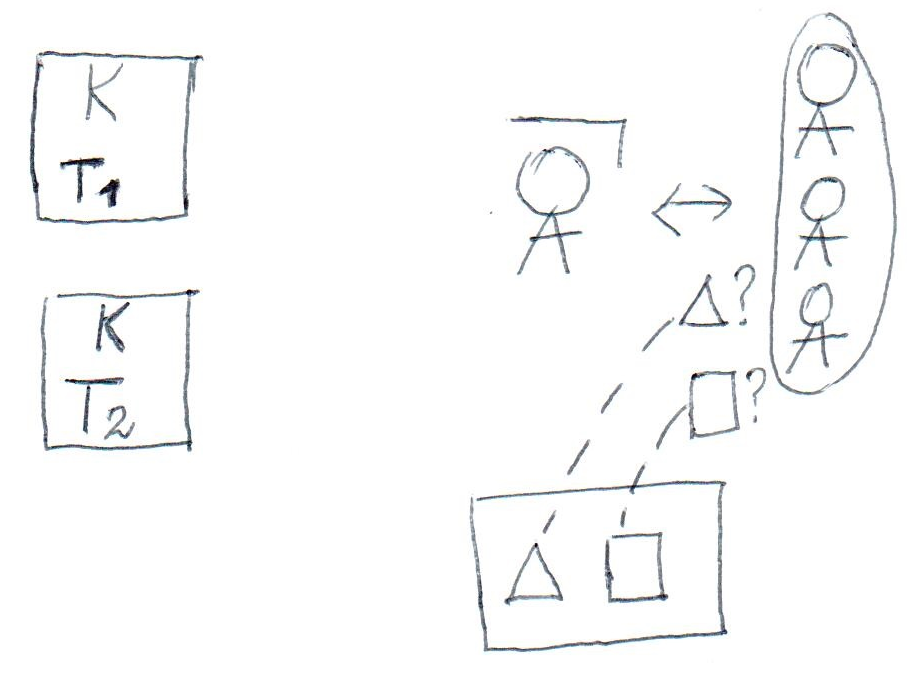 K
T1
K
T2
?
?